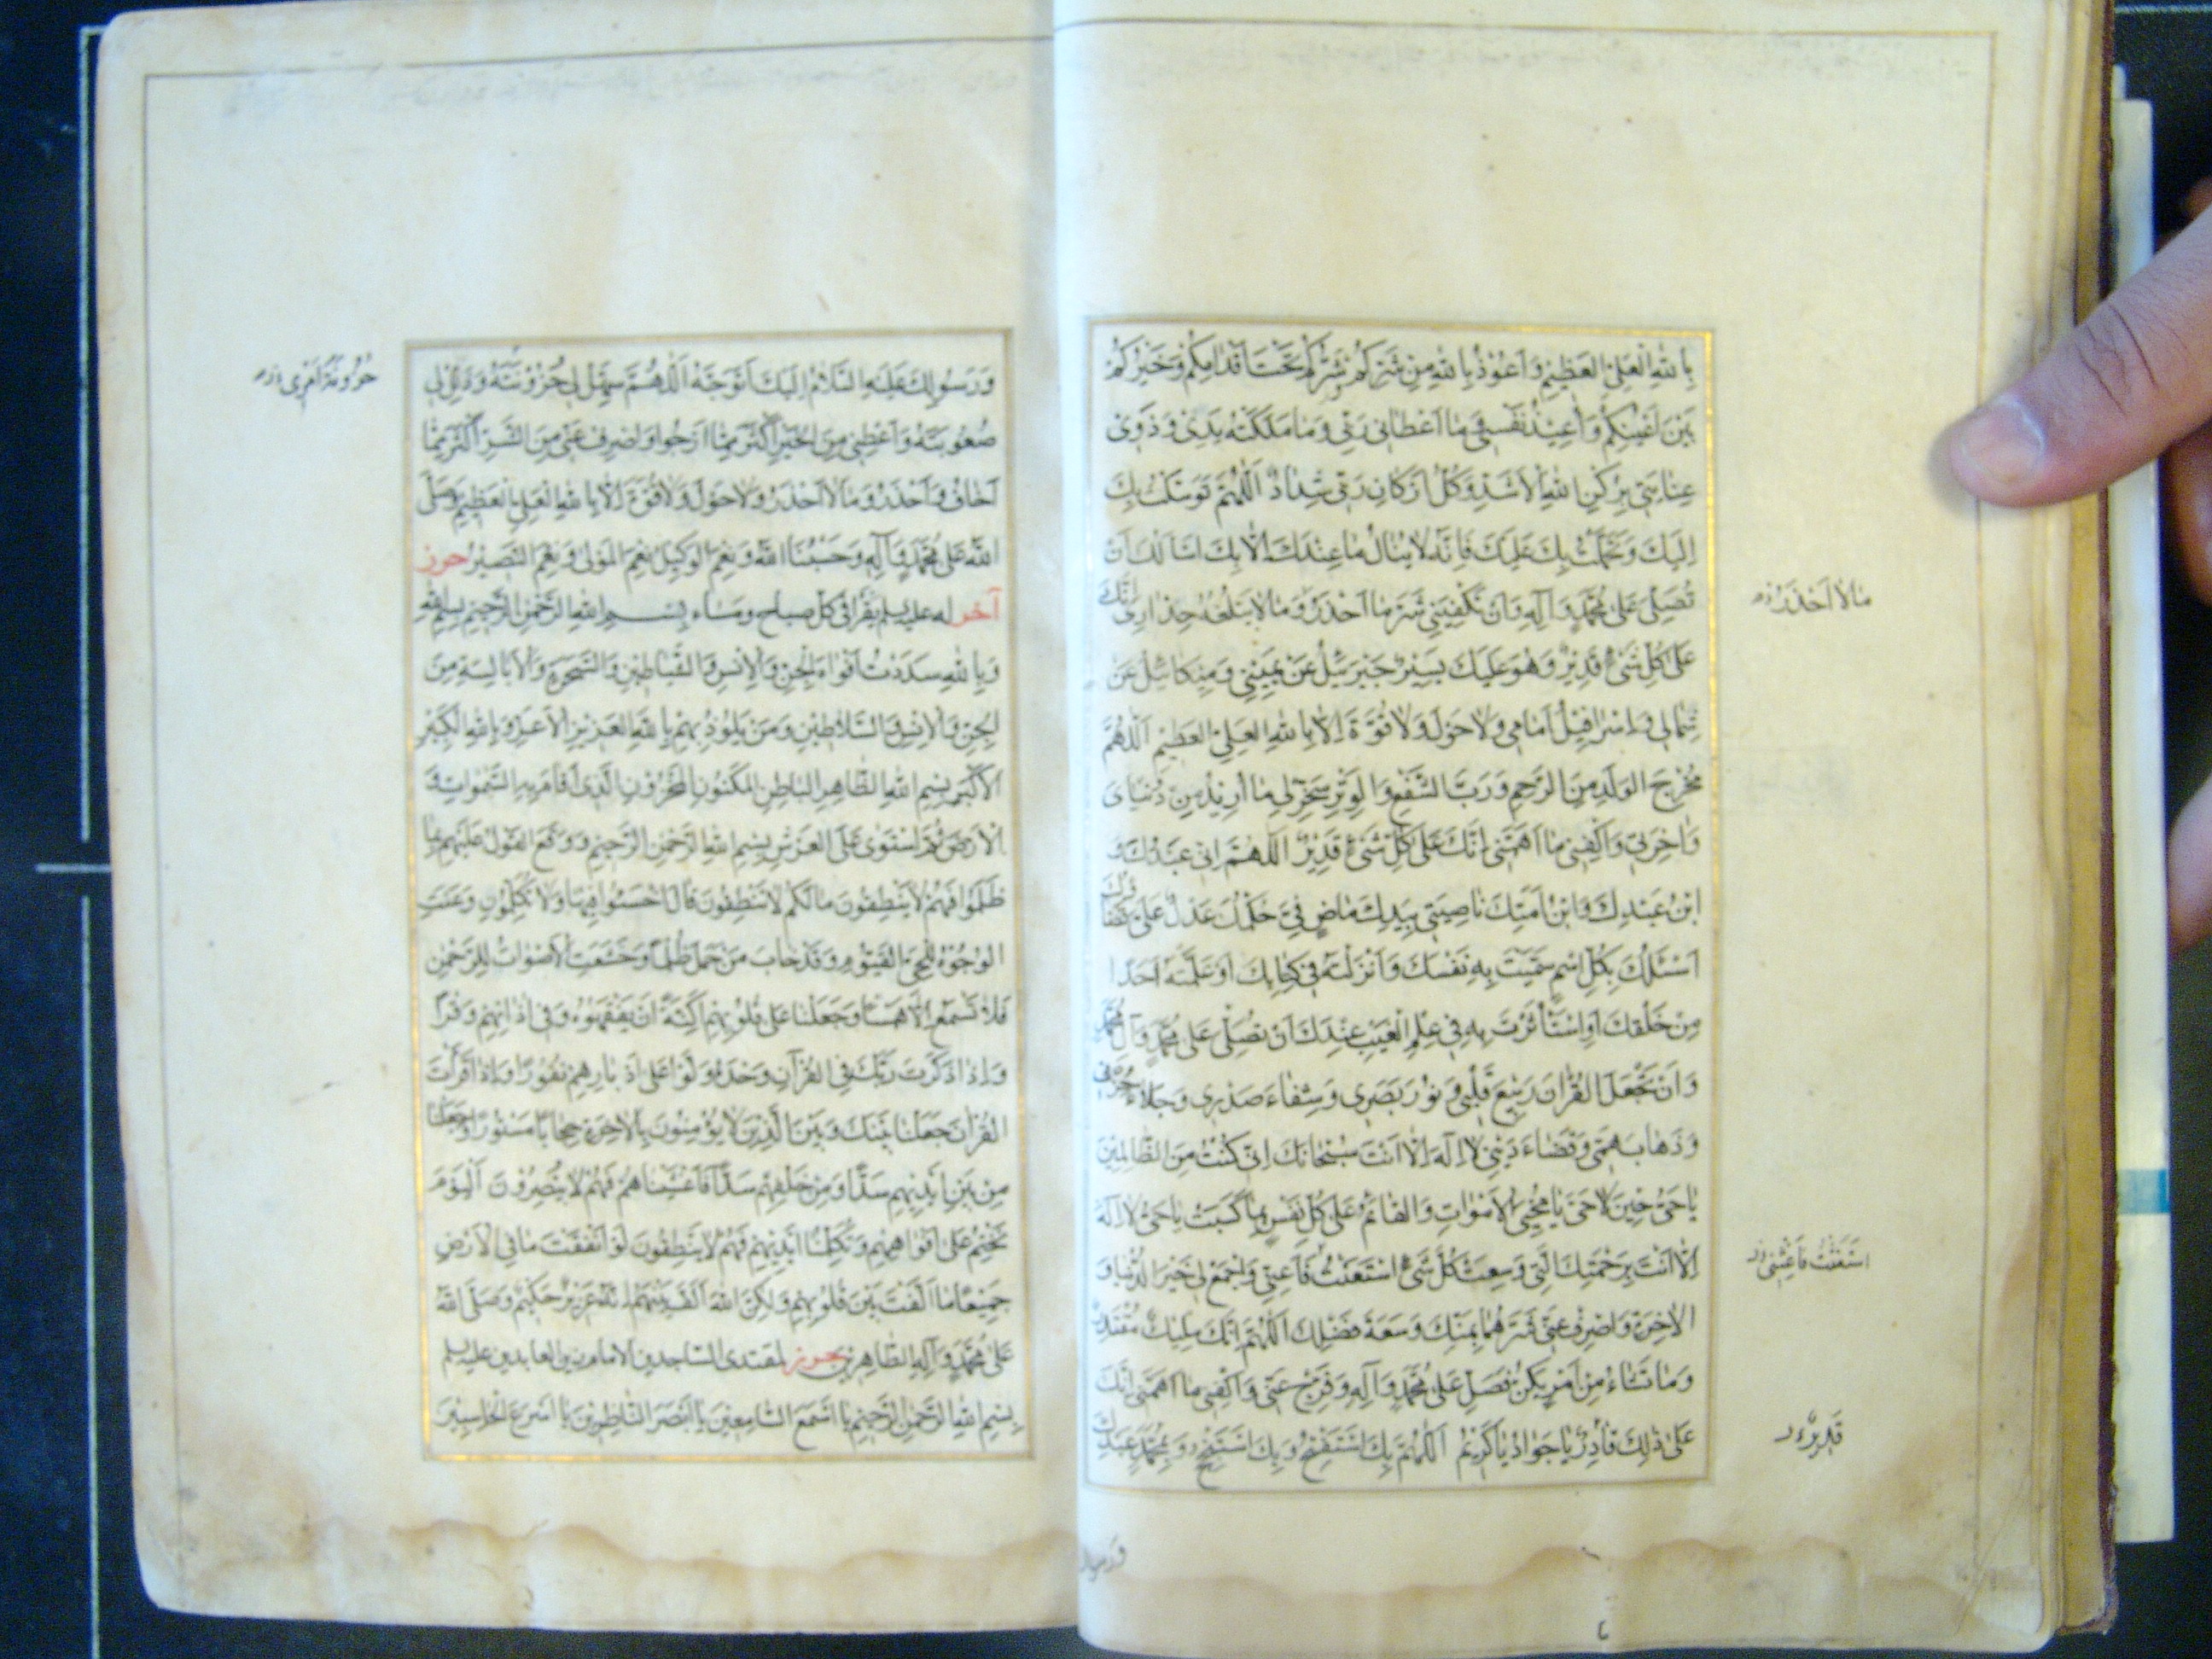 بِاللهِ العَلِيِّ العَظِيمِ وَاَعُوذُ بِاللهِ مِن شَرِّكُمْ شَرُّكُمْ تَحْتَ اَقْدَامِكُمْ وَخَيْرُكُمْ
بَيْنَ اَعْيُنِكُمْ وَاُعِيذُ نَفْسِي وَمَا اَعْطَانِي رَبِّي وَمَا مَلَكَتْهُ يَدِي وَذَوِي
عِنَايَتِي بِرُكْنِ اللهِ الاَشَدِّ وَكُلُّ اَرْكَانِ رَبِّي شِدَادٌ اَللّٰهُمَّ تَوَسَّلْتُ بِكَ
اِلَيْكَ وَتَحَمَّلْتُ بِكَ عَلَيْكَ فَاِنَّهُ لَا يُنَالُ مَا عِنْدَكَ اِلَّا بِكَ اَسْأَلُكَ اَنْ
تُصَلِّيَ عَلَى مُحَمَّدٍ وَآلِهِ وَاَنْ تَكْفِيَنِي شَرَّ مَا اَحْذَرُ وَمَا لَا يَبْلُغُهُ حِذَارِي اِنَّكَ
مَا لَا اَحْذَرُ
عَلَى كُلِّ شَيْءٍ قَدِيرٌ وَهُوَ عَلَيْكَ يَسِيرٌ جَبْرَئِيلُ عَنْ يَمِينِي وَمِيكَائِيلُ عَنْ
شِمَالِي وَاِسْرَافِيلُ اَمَامِي وَلَا حَوْلَ وَلَا قُوَّةَ اِلَّا بِاللهِ العَلِيِّ العَظِيمِ اَللّٰهُمَّ
مُخْرِجَ الوَلَدِ مِنَ الرَّحِمِ وَرَبَّ الشَّفْعِ وَالوَتْرِ سَخِّرْ لِي مَا اُرِيدُ مِنْ دُنْيَايَ
وَاٰخِرَتِي وَاكْفِنِي مَا اَهَمَّنِي اِنَّكَ عَلَى كُلِّ شَيْءٍ قَدِيرٌ اَللّٰهُمَّ اِنِّي عَبْدُكَ وَ
ابْنُ عَبْدِكَ وَابْنُ اَمَتِكَ نَاصِيَتِي بِيَدِكَ مَاضٍ فِيَّ حُكْمُكَ عَدْلٌ عَلَيَّ قَضَاؤُكَ
اَسْئَلُكَ بِكُلِّ اسْمٍ سَمَّيْتَ بِهِ نَفْسَكَ وَاَنْزَلْتَهُ فِي كِتَابِكَ اَوْ عَلَّمْتَهُ اَحَدًا
مِنْ خَلْقِكَ اَوِ اسْتَأْثَرْتَ بِهِ فِي عِلْمِ الْغَيْبِ عِنْدَكَ اَنْ تُصَلِّيَ عَلَى مُحَمَّدٍ وَآلِ مُحَمَّدٍ
وَاَنْ تَجْعَلَ القُرْاٰنَ رَبِيعَ قَلْبِي وَنُورَ بَصَرِي وَشِفَاءَ صَدْرِي وَجَلَاءَ حُزْنِي
وَذَهَابَ هَمِّي وَقَضَاءَ دَيْنِي لَا اِلٰهَ اِلَّا اَنْتَ سُبْحَانَكَ اِنِّي كُنْتُ مِنَ الظَّالِمِينَ
يَا حَيُّ حِينَ لَا حَيَّ يَا مُحْيِيَ الاَمْوَاتِ وَالقَائِمُ عَلَى كُلِّ نَفْسٍ بِمَا كَسَبَتْ يَا حَيُّ لَا اِلٰهَ
اِلَّا اَنْتَ بِرَحْمَتِكَ الَّتِي وَسِعَتْ كُلَّ شَيْءٍ اسْتَعَنْتُ فَاَعِنِّي وَاجْمَعْ لِي خَيْرَ الدُّنْيَا وَ
اسْتَغَثْتُ فَاَغِثْنِي
الاٰخِرَةِ وَاصْرِفْ عَنِّي شَرَّهُمَا بِمَنِّكَ وَسَعَةِ فَضْلِكَ اَللّٰهُمَّ اِنَّكَ مَلِيكٌ مُقْتَدِرٌ
وَمَا تَشَاءُ مِنْ اَمْرٍ يَكُنْ فَصَلِّ عَلَى مُحَمَّدٍ وَآلِهِ وَفَرِّجْ عَنِّي وَاكْفِنِي مَا اَهَمَّنِي اِنَّكَ
عَلَى ذٰلِكَ قَادِرٌ يَا جَوَادُ يَا كَرِيمُ اَللّٰهُمَّ بِكَ اَسْتَفْتِحُ وَبِكَ اَسْتَنْجِحُ وَبِمُحَمَّدٍ عَبْدِكَ
قَدِيرٌ
وَرَسُولِكَ
وَرَسُولِكَ عَلَيْهِ السَّلَامُ اِلَيْكَ اَتَوَجَّهُ اَللّٰهُمَّ سَهِّلْ لِي حُزُونَتَهُ وَذَلِّلْ لِي
حُزُونَةَ اَمْرِي
صُعُوبَتَهُ وَاَعْطِنِي مِنَ الخَيْرِ اَكْثَرَ مِمَّا اَرْجُو وَاصْرِفْ عَنِّي مِنَ الشَّرِّ اَكْثَرَ مِمَّا
اَخَافُ وَاَحْذَرُ وَمَا لَا اَحْذَرُ وَلَا حَوْلَ وَلَا قُوَّةَ اِلَّا بِاللهِ العَلِيِّ العَظِيمِ وَصَلَّى
اللهُ عَلَى مُحَمَّدٍ وَآلِهِ وَحَسْبُنَا اللهُ وَنِعْمَ الوَكِيلُ نِعْمَ المَوْلَى وَنِعْمَ النَّصِيرُ حرز
آخر له عليه السلم يقرأ في كل صباح ومساء بِسْمِ اللهِ الرَّحْمٰنِ الرَّحِيمِ بِسْمِ اللهِ
وَبِاللهِ سَدَدْتُ اَفْوَاهَ الجِنِّ وَالاِنْسِ وَالشَّيَاطِينِ وَالسَّحَرَةِ وَالاَبَالِسَةِ مِنَ
الجِنِّ وَالاِنْسِ وَالسَّلَاطِينِ وَمَنْ يَلُوذُ بِهِمْ بِاللهِ العَزِيزِ الاَعَزِّ وَبِاللهِ الكَبِيرِ
الاَكْبَرِ بِسْمِ اللهِ الظَّاهِرِ البَاطِنِ المَكْنُونِ المَخْزُونِ الَّذِي اَقَامَ بِهِ السَّمٰوَاتِ وَ
الاَرْضَ ثُمَّ اسْتَوَى عَلَى العَرْشِ بِسْمِ اللهِ الرَّحْمٰنِ الرَّحِيمِ وَوَقَعَ القَوْلُ عَلَيْهِمْ بِمَا
ظَلَمُوا فَهُمْ لَا يَنْطِقُونَ مَا لَكُمْ لَا تَنْطِقُونَ قَالَ اخْسَئُوا فِيهَا وَلَا تُكَلِّمُونِ وَعَنَتِ
الوُجُوهُ لِلْحَيِّ القَيُّومِ وَقَدْ خَابَ مَنْ حَمَلَ ظُلْمًا وَخَشَعَتِ الاَصْوَاتُ لِلرَّحْمٰنِ
فَلَا تَسْمَعُ اِلَّا هَمْسًا وَجَعَلْنَا عَلَى قُلُوبِهِمْ اَكِنَّةً اَنْ يَفْقَهُوهُ وَفِي اٰذَانِهِمْ وَقْرًا
وَاِذَا ذَكَرْتَ رَبَّكَ فِي القُرْآنِ وَحْدَهُ وَلَّوْا عَلَى اَدْبَارِهِمْ نُفُورًا وَاِذَا قَرَأْتَ
القُرْاٰنَ جَعَلْنَا بَيْنَكَ وَبَيْنَ الَّذِينَ لَا يُؤْمِنُونَ بِالاٰخِرَةِ حِجَابًا مَسْتُورًا وَجَعَلْنَا
مِنْ بَيْنِ اَيْدِيهِمْ سَدًّا وَمِنْ خَلْفِهِمْ سَدًّا فَاَغْشَيْنَاهُمْ فَهُمْ لَا يُبْصِرُونَ اَلْيَوْمَ
نَخْتِمُ عَلَى اَفْوَاهِهِمْ وَتُكَلِّمُنَا اَيْدِيهِمْ فَهُمْ لَا يَنْطِقُونَ لَوْ اَنْفَقْتَ مَا فِي الاَرْضِ
جَمِيعًا مَا اَلَّفْتَ بَيْنَ قُلُوبِهِمْ وَلٰكِنَّ اللهَ اَلَّفَ بَيْنَهُمْ اِنَّهُ عَزِيزٌ حَكِيمٌ وَصَلَّى اللهُ
عَلَى مُحَمَّدٍ وَآلِهِ الطَّاهِرِينَ حرز لمقتدى الساجدين الامام زين العابدين عليه السلم
بِسْمِ اللهِ الرَّحْمٰنِ الرَّحِيمِ يَا اَسْمَعَ السَّامِعِينَ يَا اَبْصَرَ النَّاظِرِينَ يَا اَسْرَعَ الحَاسِبِينَ